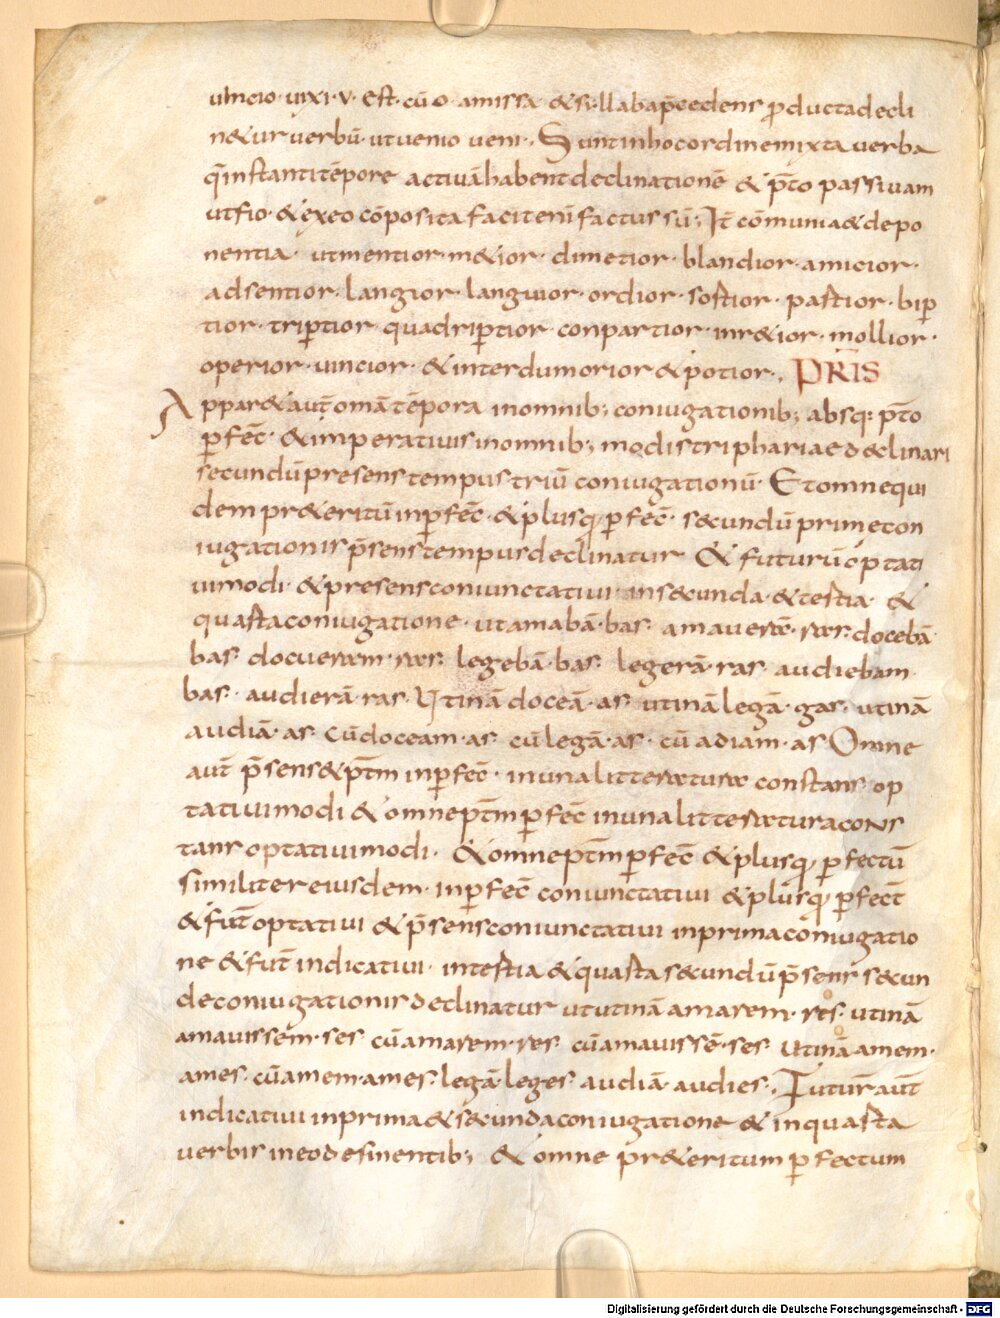 uincio· uixi· v· est· cū o· amissa &sillaba p̄cedens ꝓducta decli
n&ur uerbū· ut uenio ueni· Sunt in hoc ordine mixta uerba
q̄ instanti tēpore actiuā habent declinationē & p̄to passiuam
ut fio· & exeo cōposita facit enī factus sū; It̄ cōmunia & depo
nentia· ut mentior· m&ior· dimetior· blandior· amicior·
adsentior· langior· languior· ordior· sortior· partior· bip
tior· triptior· quadriptior· conpartior· inr&ior· mollior·
operior· uincior· & interdum orior & potior. PRIS
Appar& aut̄ om̄a tēpora in omnib; coniugationib; absq: p̄to
ꝑfec̄· & imperatiuis in omnib; modis triphariae declinari
secundū presens tempus triū coniugationū· Et omne qui
dem pr&eritū inꝑfec̄· & plusq, ꝑfec̄· s&cundū prime con
iugationis p̄sens tempus declinatur & futurū optati
ui modi· & presens coniunctatiui· in s&cunda· & tertia· &
quarta coniugatione· ut amabā· bas· amaueram· ras: docebā
bas· docueram· ras· legebā· bas· legerā· ras· audiebam·
bas· audierā· ras· Utinā doceā· as· utinā legā· gas· utinā
audiā· as cū doceam· as cū legā· as· cū adiam· as Omne
aut̄ p̄sens & p̄tm inꝑfec̄· in una litteratura constans op
tatiui modi & omne p̄tm ꝑfec̄ in una litteratura cons
tans optatiui modi· & omne p̄tm ꝑfec̄ & plusq, ꝑfectū
similiter eiusdem· inꝑfec̄ coniunctatiui & plusq, ꝑfect̄
& fut̄ optatiui & p̄sens coniunctatiui in prima coniugatio
ne & fut̄ indicatiui· in tertia & quarta s&cundū p̄sens s&cun
de coniugationis declinatur ut utinā amarem· res· utinā
amauissem· ses cū amarem· res cū amauissē· ses utinā amem·
ames· cū amem· ames· legā· leges audiā audies. Futur̄ aut̄
indicatiui in prima & s&cunda coniugatione & in quarta
uerbis in eo desinentib; & omne pr&eritum ꝑfectum
Digitalisierung gefördert durch die Deutsche Forschungsgemeinschaft - DFG